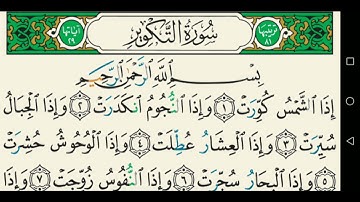 ترتيبها ٨١ سُورَةُ التَّكْوِيرِ آياتها ٢٩
بِسْمِ اللَّهِ الرَّحْمَٰنِ الرَّحِيمِ
إِذَا الشَّمْسُ كُوِّرَتْ ١ وَإِذَا النُّجُومُ انكَدَرَتْ ٢ وَإِذَا الْجِبَالُ
سُيِّرَتْ ٣ وَإِذَا الْعِشَارُ عُطِّلَتْ ٤ وَإِذَا الْوُحُوشُ حُشِرَتْ
٥ وَإِذَا الْبِحَارُ سُجِّرَتْ ٦ وَإِذَا النُّفُوسُ زُوِّجَتْ ٧ وَإِذَا